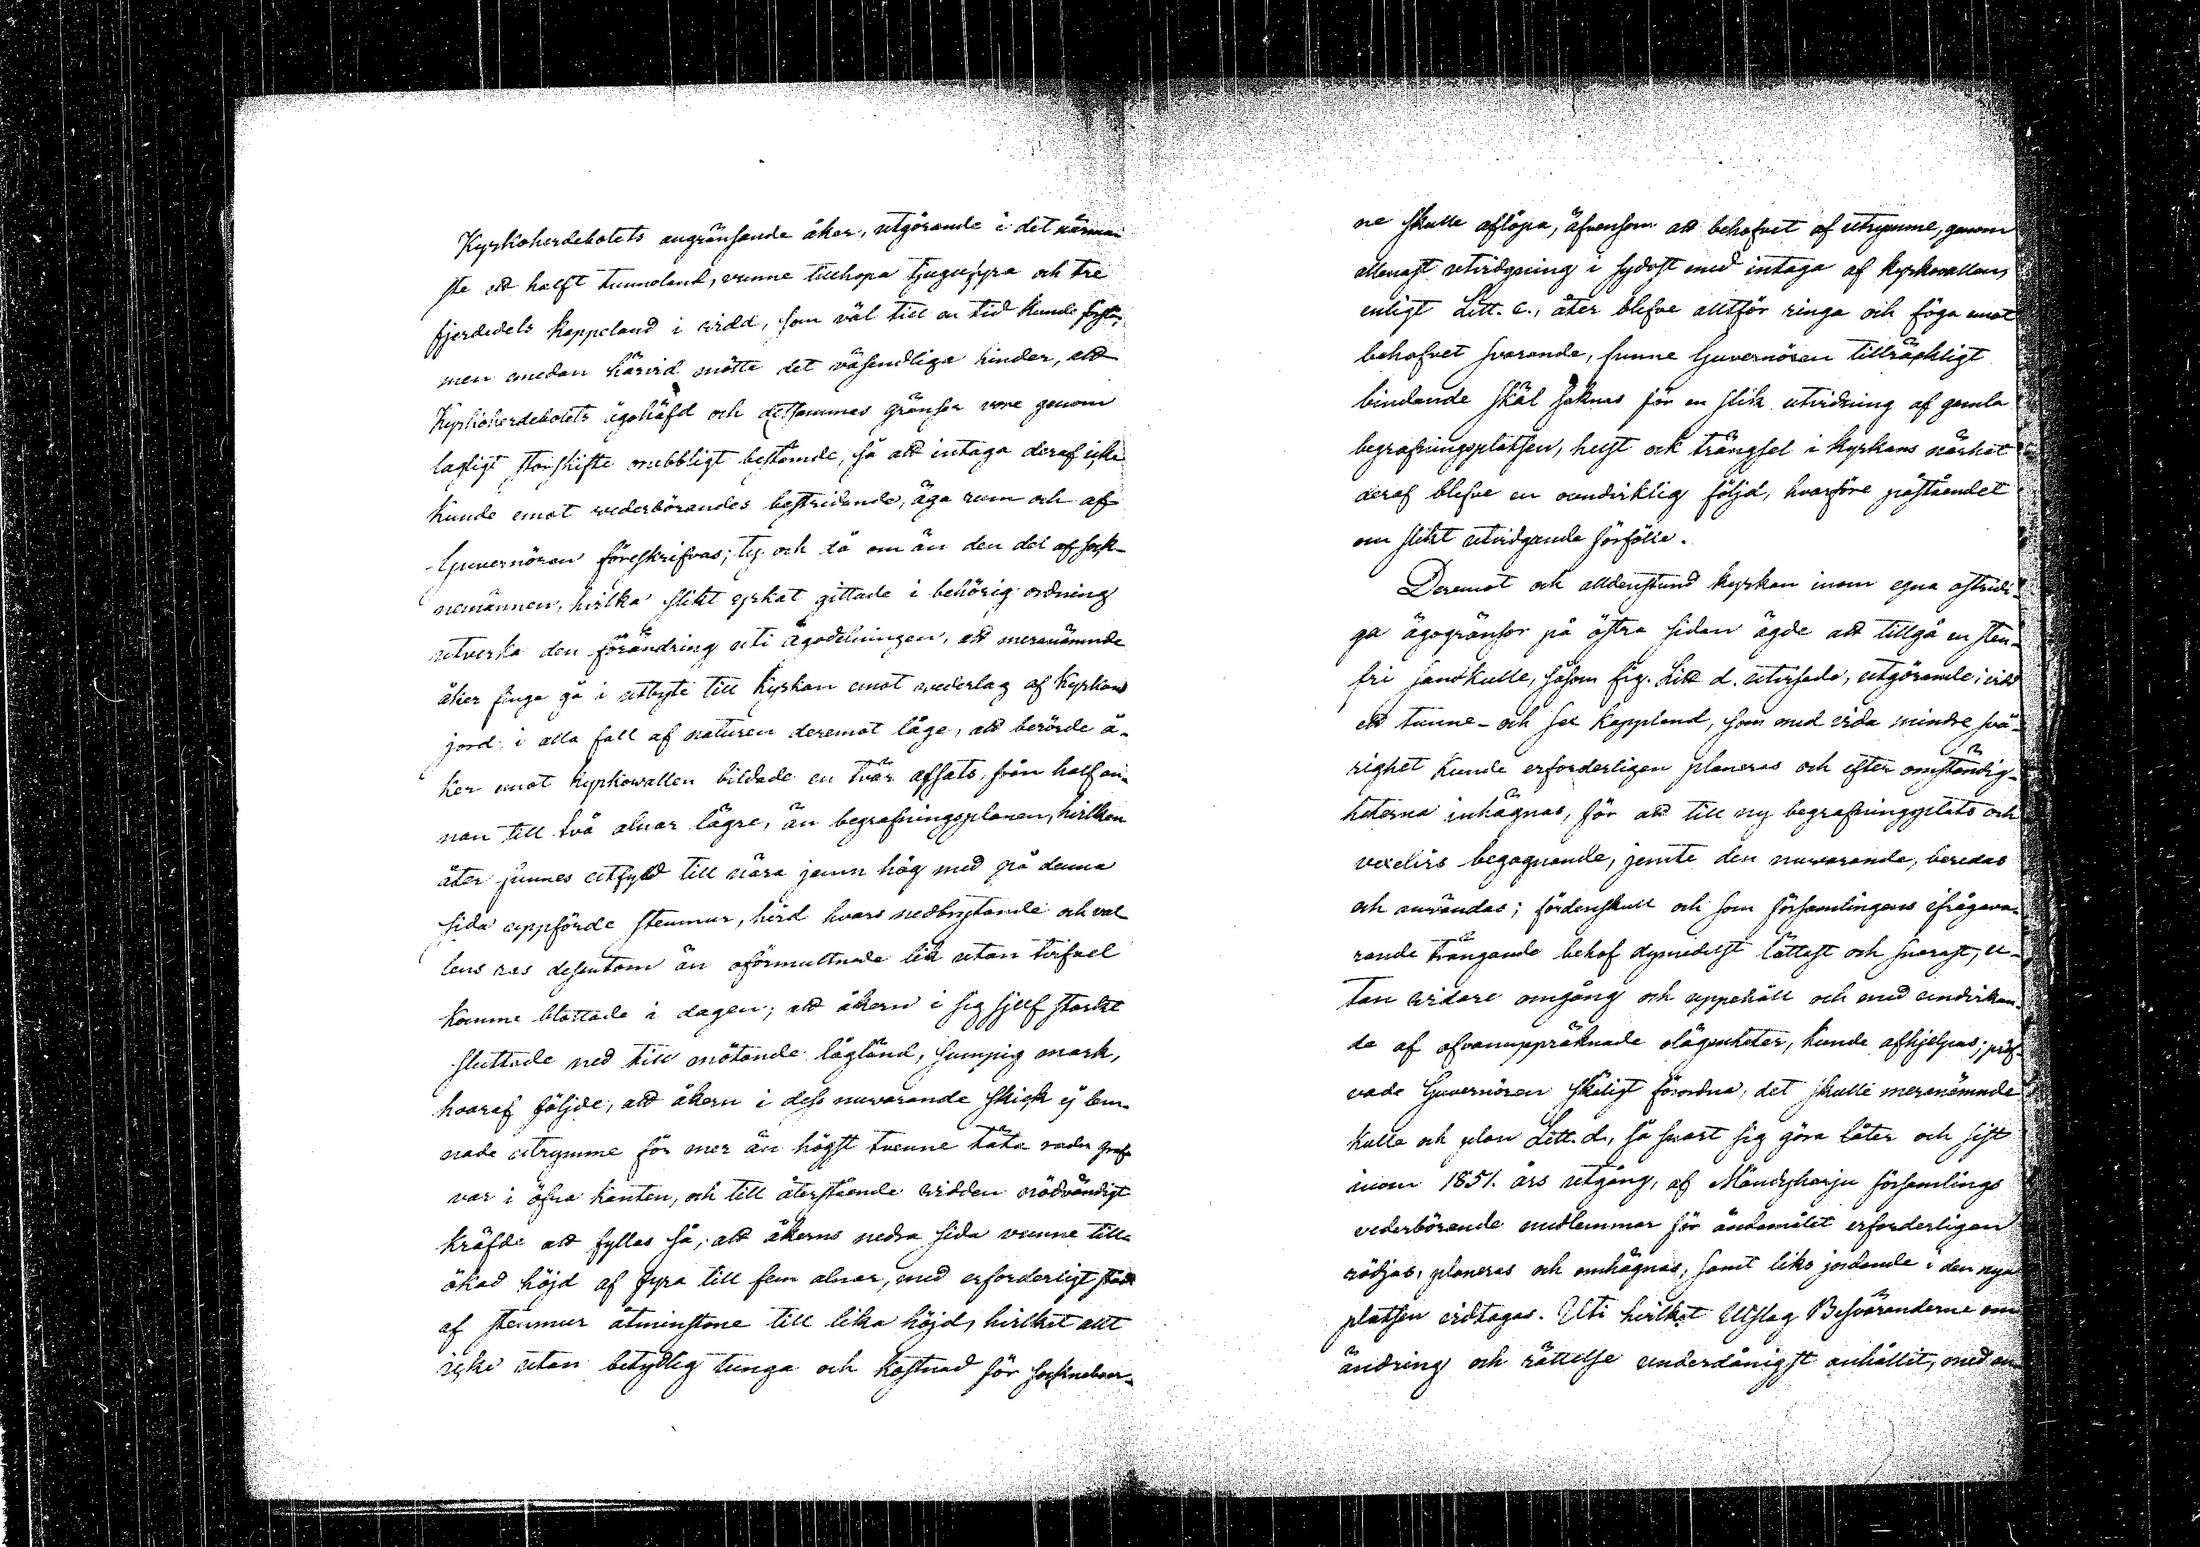 Kyrkoherdebolets angränsande åker, utgörande i det närma-
ste ett halft tunneland, vunne tillhopa tjugufyra och tre
fjerdedels kappeland i vidd, som väl till en tid kunde
men emedan härvid mötte det väsendtliga hinder, att
Kyrkoherdebolets ägohäfd och detsammas gränser vore genom
lagligt storskifte orubbligt bestämde, så att intaga deraf icke
kunde emot vederbörandes bestridande, äga rum och af
Guvernören föreskrifvas; ty och då om än den del af sock-
nemännen, hvilka slikt yrkat gittade i behörig ordning
utverka den förändring uti ägodelningen, att meranämnde
åker finge gå i utbyte till Kyrkan emot vederlag af Kyrkans
jord i alla fall af naturen deremot låge, att berörde å-
ker emot kyrkovallen bildade en tvär afsats, från half an-
nan till två alnar lägre, än begrafningsplanen, hvilken
åter funnes utfyld till nära jemn hög med på denna
sida uppförde stenmur, hvid hvars nedbrytande och val-
lens ras dessutom än oförmultnade lik utan tvifvel
komme blottade i dagen; att åkern i sig sjelf starkt
sluttade ned till mötande lågländ, sumpig mark,
hvaraf följde, att åkern i dess nuvarande skick ej lem-
nade utrymme för mer än högst tvenne täta rader graf-
var i öfra kanten, och till återstående vidden nödvändigt
kräfde att fyllas så, att åkerns nedra sida vunne till-
ökad höjd af fyra till fem alnar, med erforderligt stöd
af stenmur åtminstone till lika höjd, hvilket allt
icke utan betydlig tunga och kostnad för sockneboer-
ne skulle aflöpa, äfvensom att behofvet af utrymme, genom
allenast utvidgning i sydost med intaga af kyrkovallen,
enligt Litt. c., åter blefve alltför ringa och föga emot
behofvet svarande, funne Guvernören tillräckligt
bindande skäl saknas för en slik utvidning af gamla
begrafningsplatsen, helst ock trängsel i kyrkans närhet
deraf blefve en oundviklig följd, hvarföre påståendet
om slikt utvidgande förfölle.
Deremot och alldenstund kyrkan inom egna ostridi-
ga ägogränsor på östra sidan ägde att tillgå en sten-
fri sandkulle, såsom fig. Litt d. utvisade, utgörande i vidd
ett tunne- och sex kappland, som med vida mindre svå-
righet kunde erforderligen planeras och efter omständig-
heterna inhägnas, för att till ny begrafningsplats och
vexelvis begagnande, jemte den nuvarande, beredas
och användas; fördenskull och som församlingens ifrågava-
rande trängande behof dymedelst lättast och snarast, u-
tan vidare omgång och uppehåll och med undvikan-
de af ofvanuppräknade olägenheter, kunde afhjelpas; pröf-
vade Guvernören skäligt förordna, det skulle meranämnde
kulle och plan Litt. d., så snart sig göra låter och sist
inom 1851. års utgång, af Mäntyharju församlings
vederbörande medlemmar för ändamålet erforderligen
rödjas, planeras och omhägnas, samt liks jordande i den nya
platsen vidtagas. Uti hvilket Utslag Besväranderne om
ändring och rättelse underdånigst anhållit, med an-